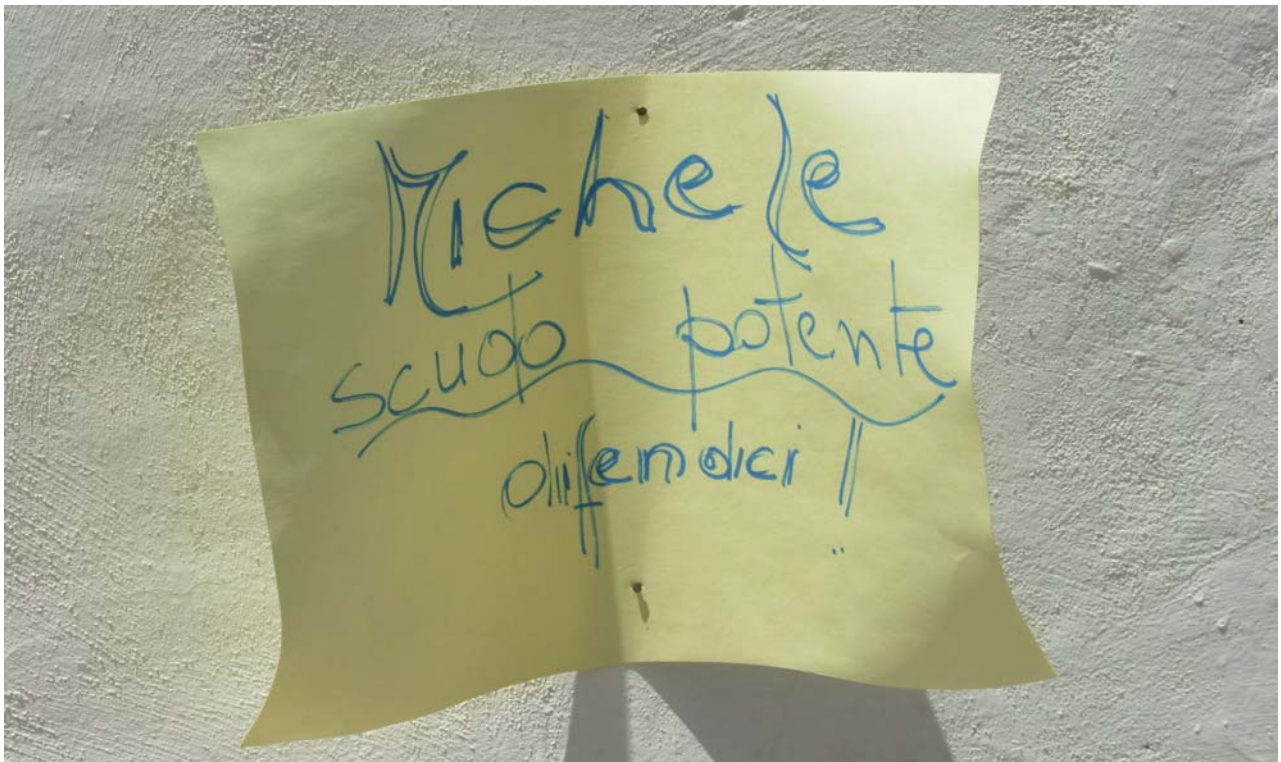 Michele
scudo potente
difendici !!